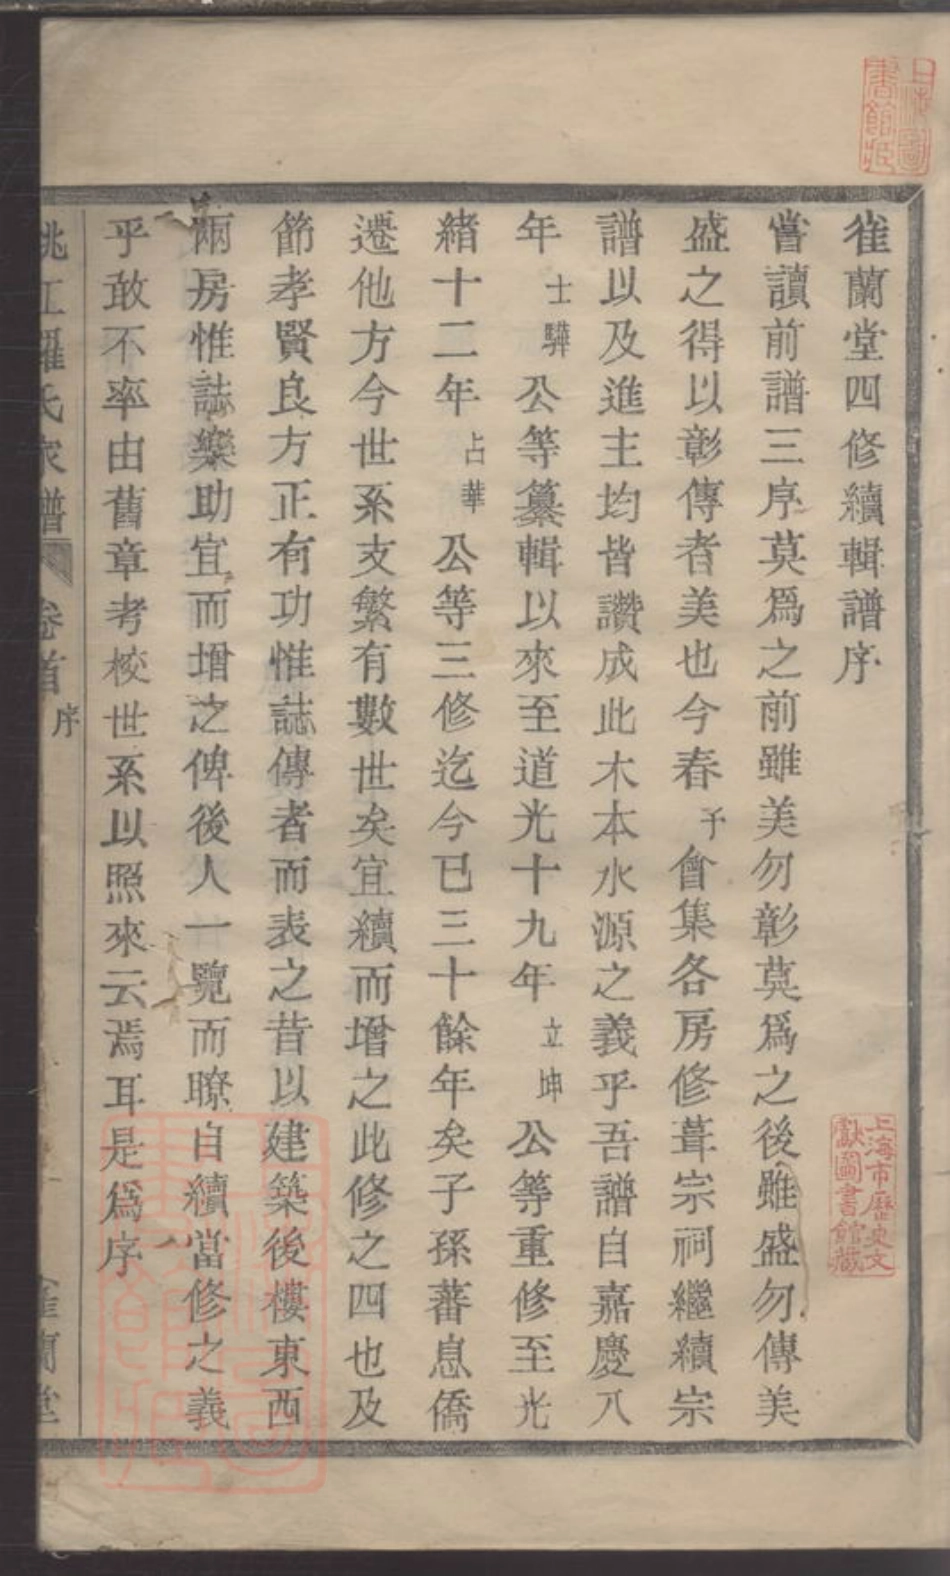 雀蘭堂四修續輯譜序
嘗讀前譜三序莫爲之前雖美勿彰莫爲之後雖盛勿傳美
盛之得以彰傳者美也今春予會集各房修葺宗祠繼續宗
譜以及進主均皆讚成此木本水源之義乎吾譜自嘉慶八
年士驊公等纂輯以來至道光十九年立坤公等重修至光
緒十二年占華公等三修迄今已三十餘年矣子孫蕃息僑
遷他方今世系支繁有數世矣宜續而增之此修之四也及
節孝賢良方正有功惟誌傳者而表之昔以建築後樓東西
兩房惟誌樂助宜而增之俾後人一覽而瞭自續當修之義
乎敢不率由舊章考校世系以照來云焉耳是爲序
姚江羅氏家譜 卷首 序 雀蘭堂
上海市歷史文
獻圖書館藏